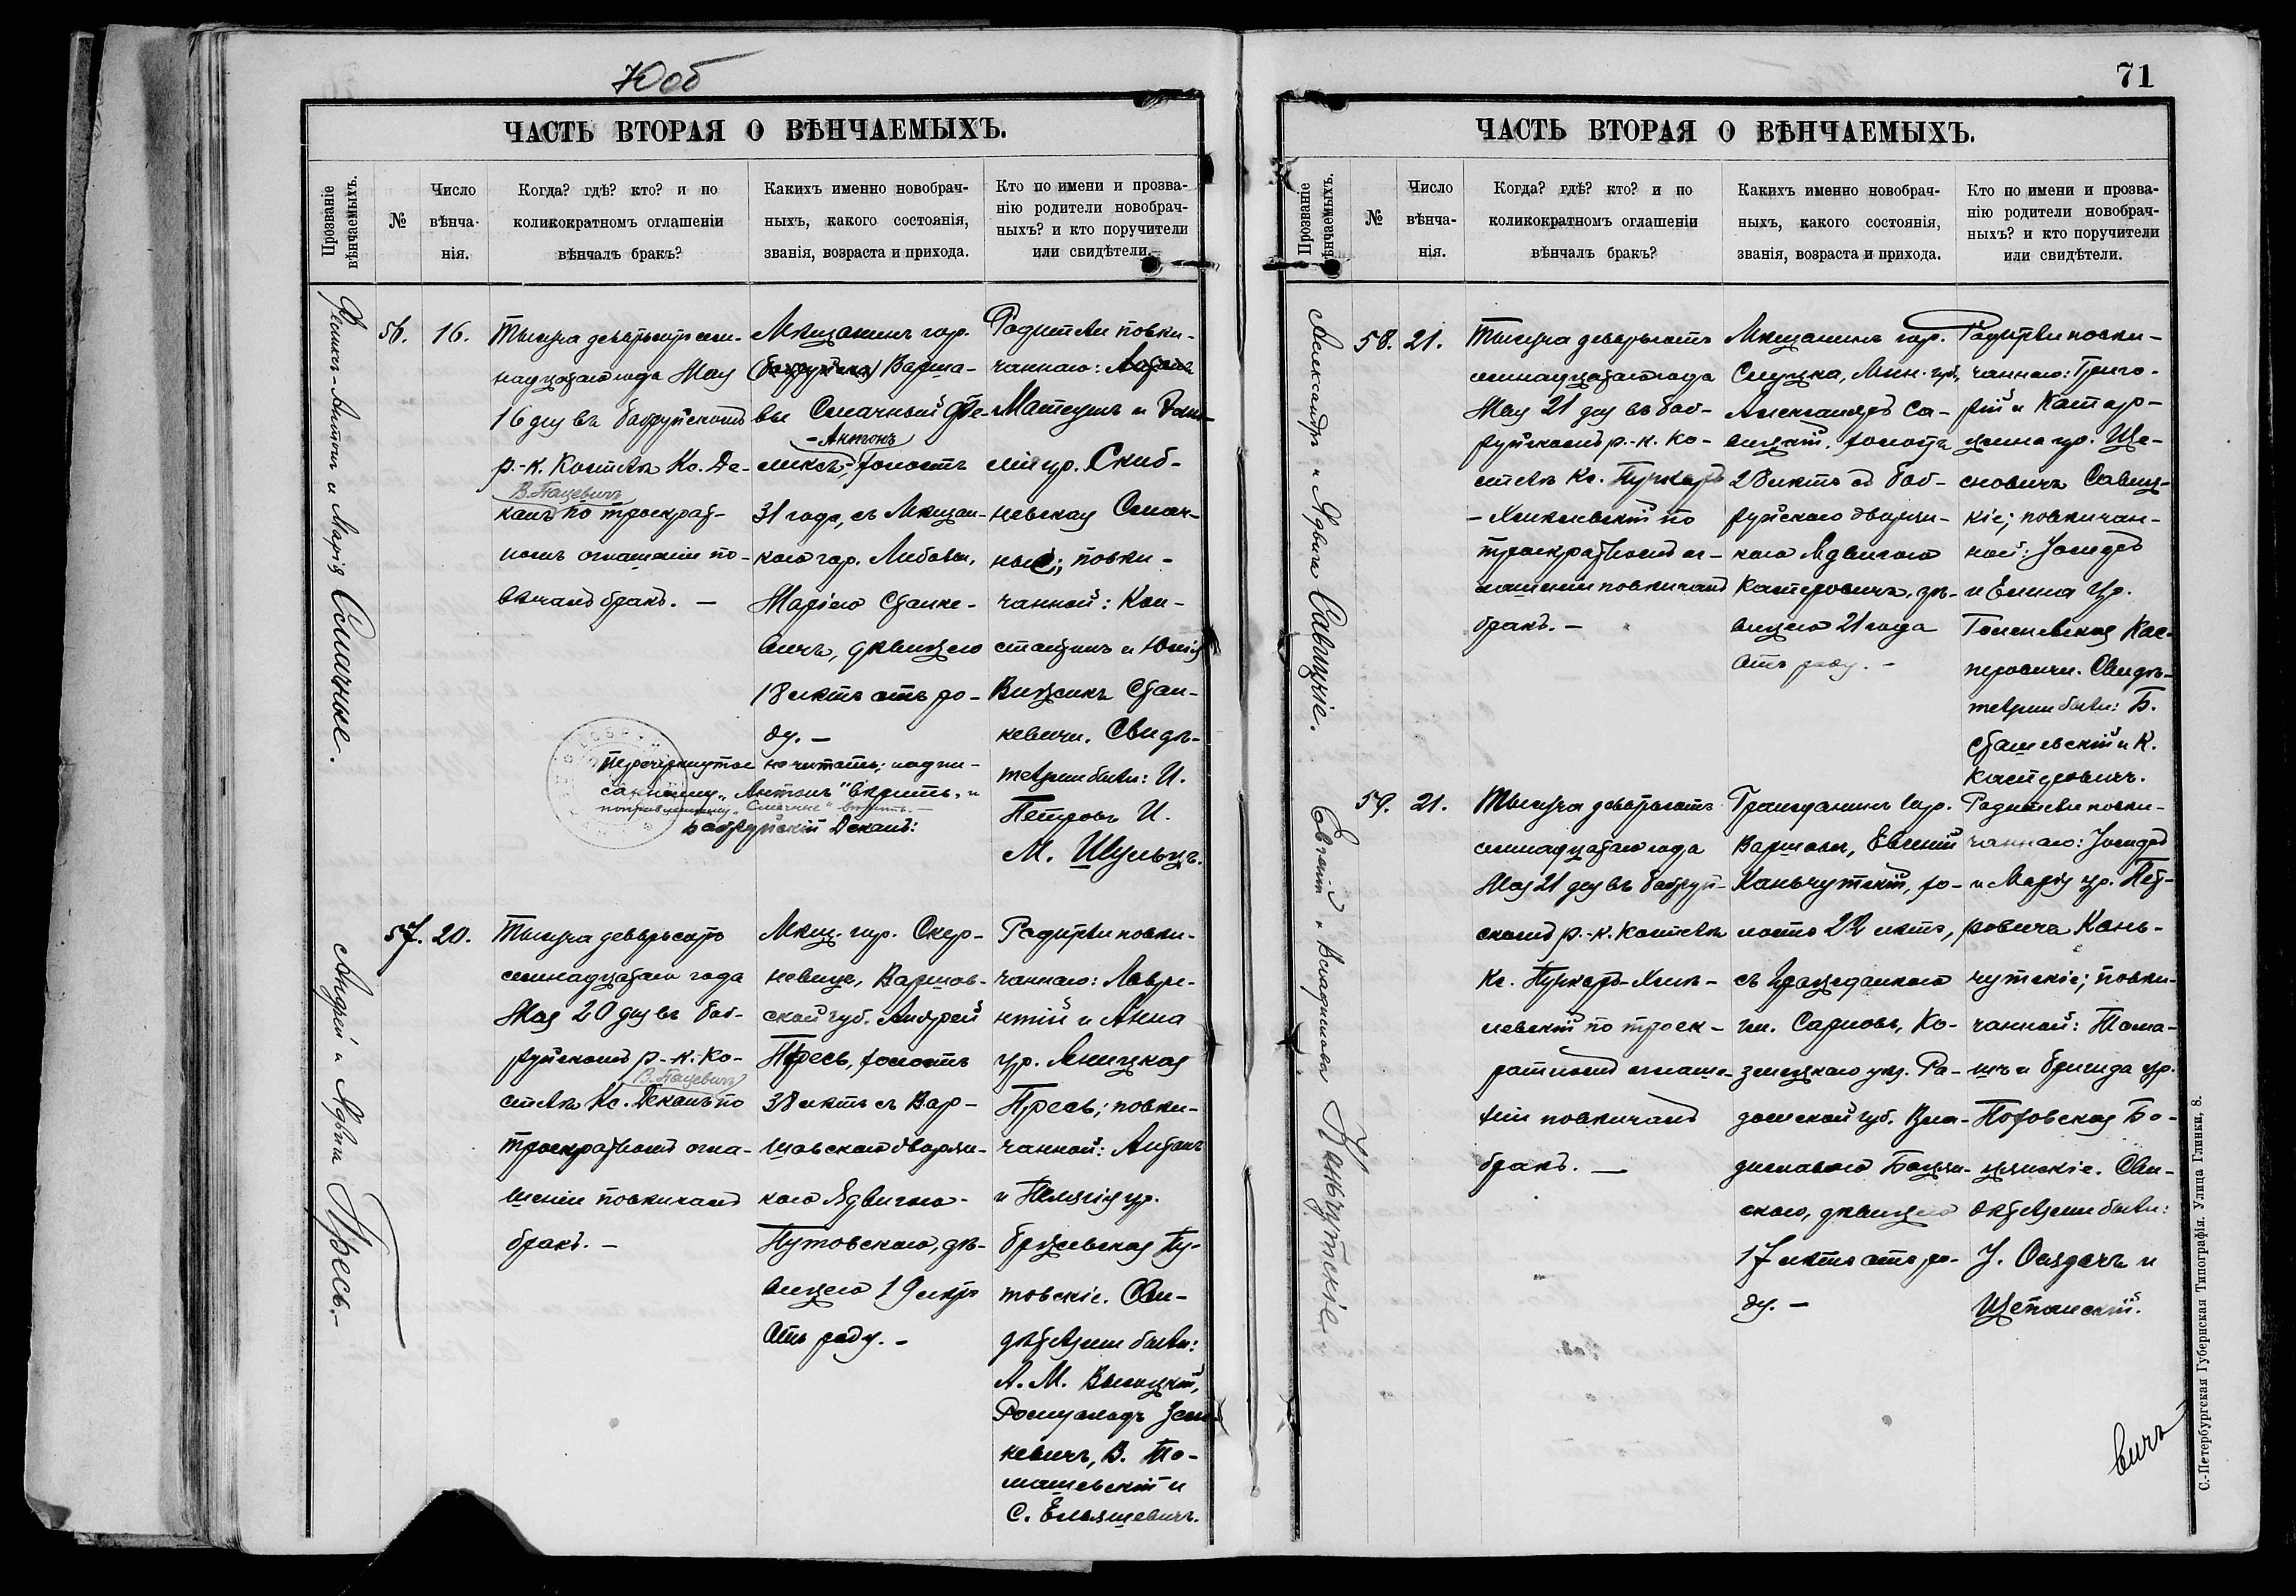 70об
ЧАСТЬ ВТОРАЯ О ВѢНЧАЕМЫХЪ.
Прозваніе
вѣнчаемыхъ.
№
Число
вѣнча-
нія.
Когда? гдѣ? кто? и по
коликократномъ оглашеніи
вѣнчалъ бракъ?
Какихъ именно новобрач-
ныхъ, какого состоянія,
званія, возраста и прихода.
Кто по имени и прозва-
нію родители новобрач-
ныхъ? и кто поручители
или свидѣтели.
Феликсъ-Антонъ и Марія Смачные.
56.
16.
Тысяча девятьсотъ сем-
надцатаго года Мая
16 дня въ Бобруйскомъ
р.-к. Костелѣ Кс. Де-
В. Пацевичъ
канъ по троекрат-
номъ оглашеніи по-
вѣнчалъ бракъ. —
Мѣщанинъ гор.
(Бобруйска) Варша-
вы Смачный Фе-
-Антонъ
ликсъ, холостъ
31 года, съ Мѣщан-
кою гор. Либавы,
Маріею Станке-
вичъ, дѣвицею
18 лѣтъ отъ ро-
ду. —
Родители повѣн-
чаннаго:
Матеушъ и
лія ур. Скиб-
невская Смач-
ные; повѣн-
чанной: Кон-
стантинъ и Юлія
Стан-
кевичи. Свидѣ-
телями были: И.
Петровъ И.
М. Шульцъ.
Перечеркнутое не читать; надпи-
санному „Антонъ" вѣрить, и
поправленному „Смачные" вѣрить. —
Бобруйскій Деканъ:
Андрей и Ядвига Пресь.—
57.
20.
Тысяча девятьсотъ
семнадцатаго года
Мая 20 дня въ Боб-
руйскомъ р.-к. Ко-
В. Пацевичъ
стелѣ Кс. Деканъ по
троекратномъ огла-
шеніи повѣнчалъ
бракъ. —
Мѣщ. гор. Скер-
невицъ, Варшав-
ской губ. Андрей
Пресь, холостъ
38 лѣтъ съ Вар-
шавскою дворян-
кою Ядвигою
Путовскою, дѣ-
вицею 19 лѣтъ
отъ роду. —
Родители повѣн-
чаннаго: Лавре-
нтій и Анна
ур. Ленецкая
Пресь; повѣн-
чанной: Антонъ
и Пелагія ур.
Пу-
товскіе. Сви-
дѣтелями были:
А. М. Высоцкій,
Ромуальдъ Зен-
кевичъ, В. То-
машевскій и
С. Ельяшевичъ.
71
ЧАСТЬ ВТОРАЯ О ВѢНЧАЕМЫХЪ.
Прозваніе
вѣнчаемыхъ.
№
Число
вѣнча-
нія.
Когда? гдѣ? кто? и по
коликократномъ оглашеніи
вѣнчалъ бракъ?
Какихъ именно новобрач-
ныхъ, какого состоянія,
званія, возраста и прихода.
Кто по имени и прозва-
нію родители новобрач-
ныхъ? и кто поручители
или свидѣтели.
Александръ и Ядвига Савицкіе.
58.
21.
Тысяча девятьсотъ
семнадцатаго года
Мая 21 дня въ Боб-
руйскомъ р.-к. Ко-
стелѣ Кс. Пункарь
-Хмѣлевскій по
троекратномъ ог-
лашеніи повѣнчалъ
бракъ. —
Мѣщанинъ гор.
Слуцка, Мин. губ.,
Александръ Са-
вицкій, холостъ
28 лѣтъ съ Боб-
руйскою дворян-
кою Ядвигою
Касперовичъ, дѣ-
вицею 21 года
отъ роду. —
Родители повѣн-
чаннаго: Григо-
рій и Катар-
жина ур. Ще-
сновичъ Савиц-
кіе; повѣнчан-
ной: Іосифъ
и Елена ур.
Кас-
перовичи. Свидѣ-
телями были: Б.
Сташевскій и К.
Касперовичъ.
Евгеній и Владислава Каньчутскіе
59.
21.
Тысяча девятьсотъ
семнадцатаго года
Мая 21 дня въ Бобруй-
скомъ р.-к. Костелѣ
Кс. Пункарь-Хмѣ-
левскій по троек-
ратномъ оглаше-
ніи повѣнчалъ
бракъ. —
Гражданинъ гор.
Варшавы, Евгеній
Каньчутскій, хо-
лостъ 22 лѣтъ,
съ гражданкою
гм. Сарновъ, Ко-
зеницкаго уѣз. Ра-
домской губ. Вла-
диславою Боцян-
скою, дѣвицею
17 лѣтъ отъ ро-
ду. —
Родители повѣн-
чаннаго: Іосифъ
и Марія ур. Пет-
ровичъ Кань-
чутскіе; повѣн-
чанной: Тома-
шъ и Бригида ур.
Бо-
цянскіе. Сви-
дѣтелями были:
и
Щепанскій.
вичъ
С.-Петербургская Губернская Типографія. Улица Глинки, 8.